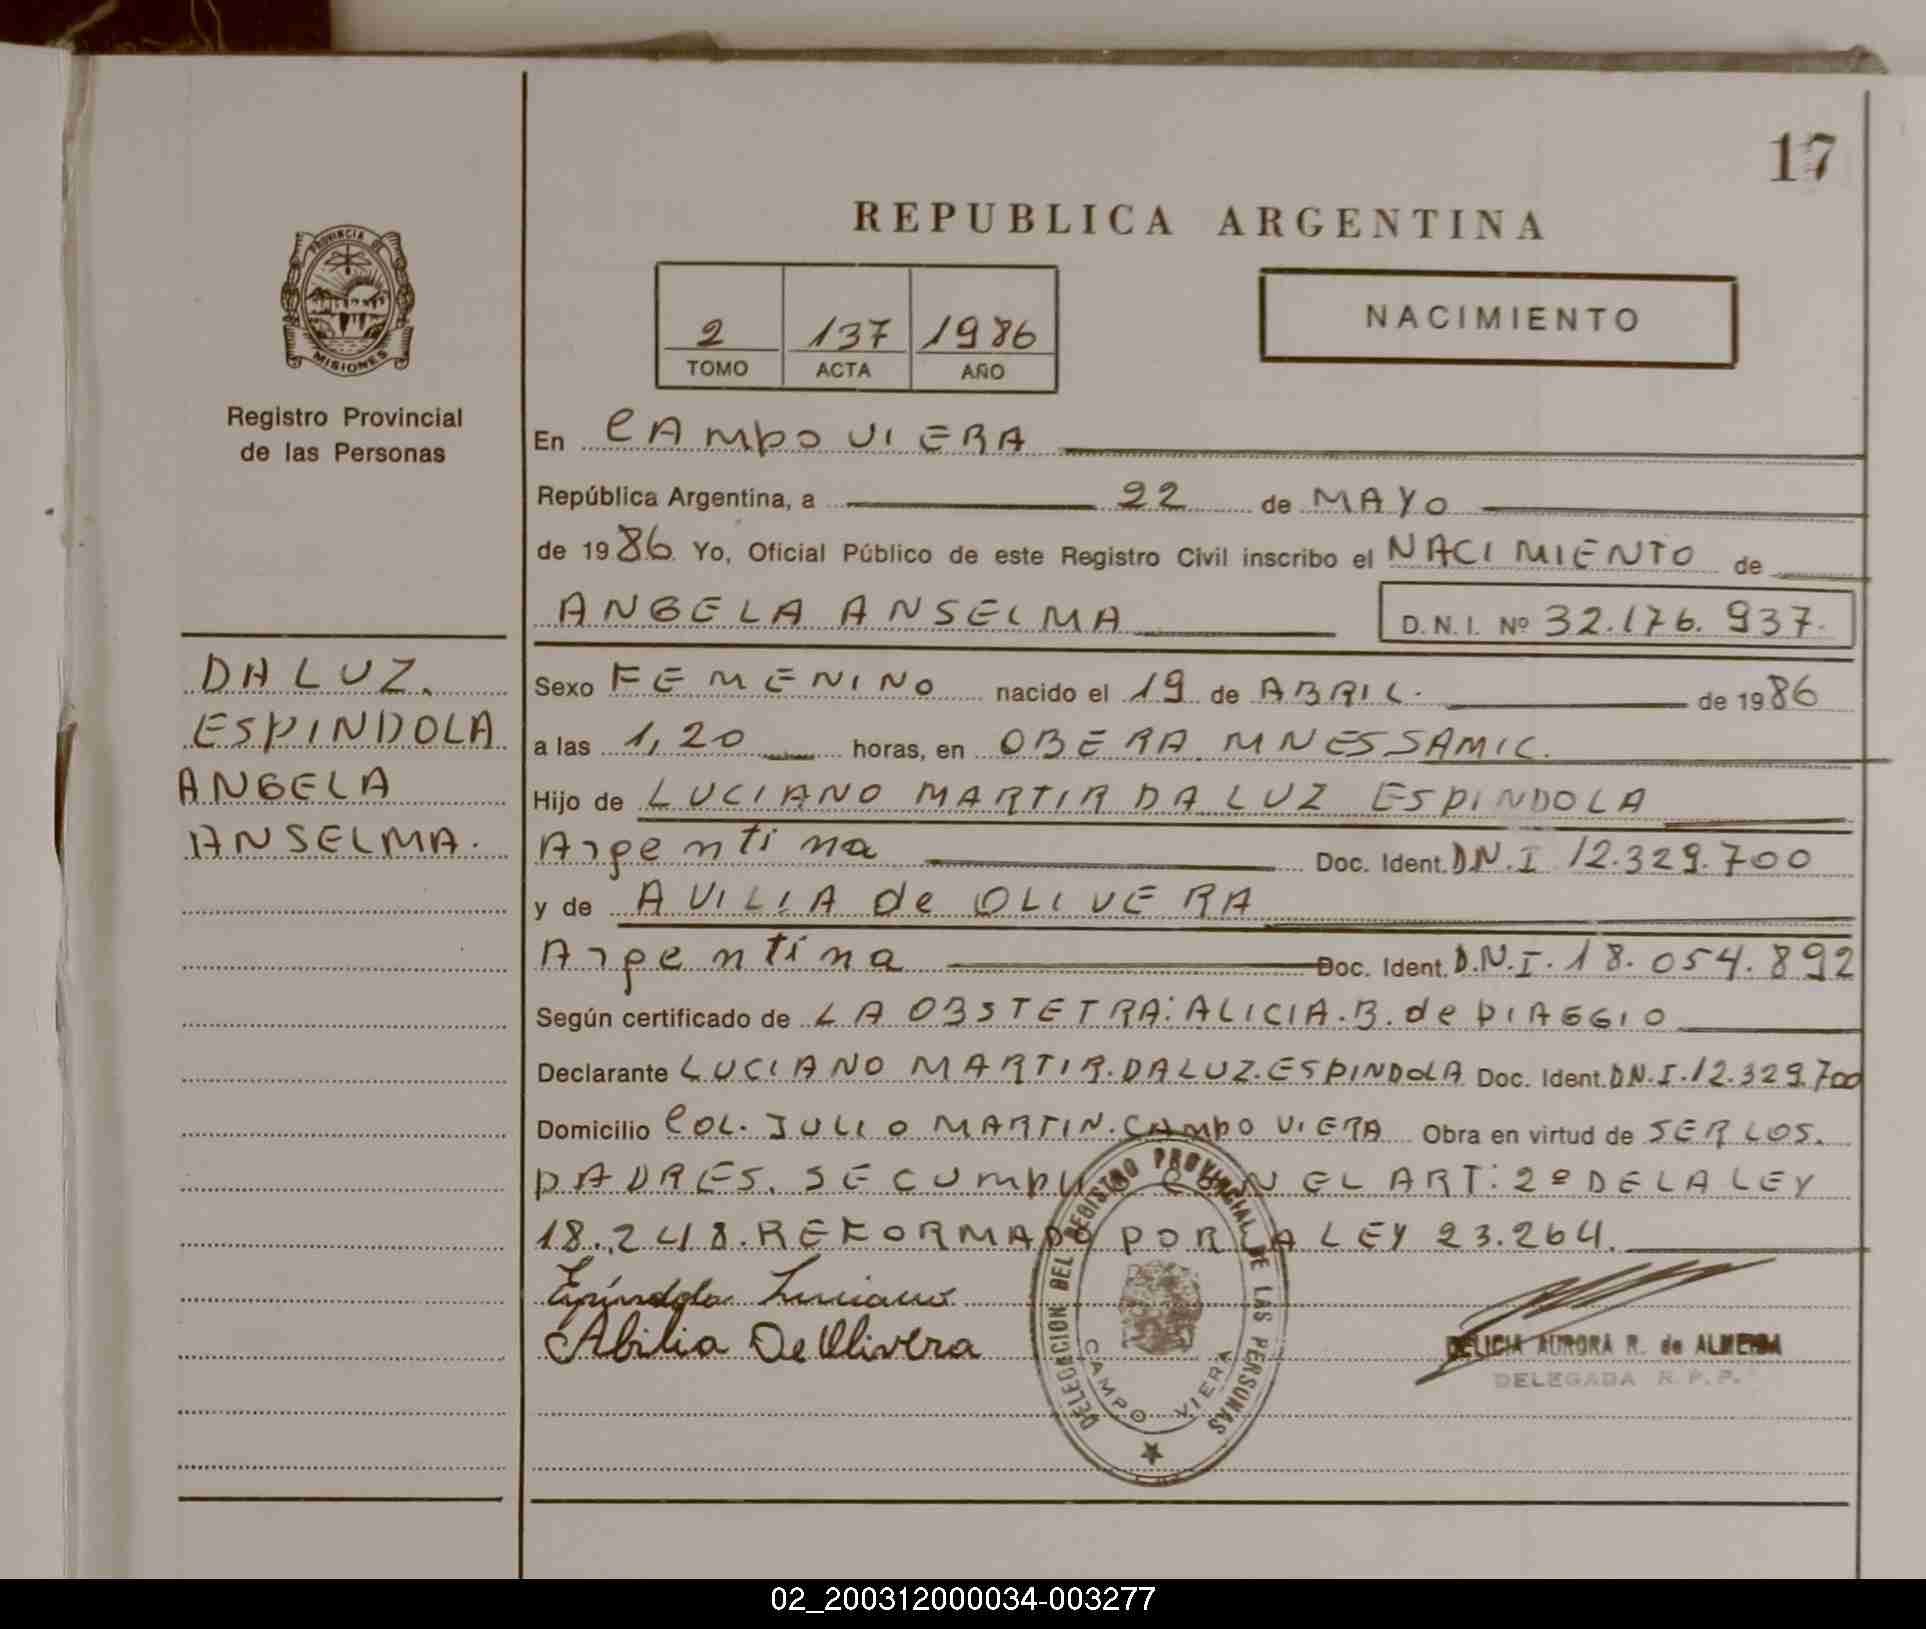 17
REPUBLICA ARGENTINA
PROVINCIA DE
MISIONES
Registro Provincial
de las Personas
2 137 1986
TOMO ACTA AÑO
NACIMIENTO
En CAMPO VIERA
República Argentina, a 22 de MAYO
de 1986 Yo, Oficial Público de este Registro Civil inscribo el NACIMIENTO de
ANGELA ANSELMA D.N.I. Nº 32.176.937.
DA LUZ.
ESPINDOLA
ANGELA
ANSELMA.
Sexo FEMENINO nacido el 19 de ABRIL. de 1986
a las 1,20 horas, en OBERA MNES SAMIC.
Hijo de LUCIANO MARTIR DA LUZ ESPINDOLA
Argentina Doc. Ident. D.N.I 12.329.700
y de AVILIA de OLIVERA
Argentina Doc. Ident. D.N.I. 18.054.892
Según certificado de LA OBSTETRA: ALICIA.B. de PIAGGIO
Declarante LUCIANO MARTIR.DA LUZ.ESPINDOLA Doc. Ident. D.N.I.12.329.700
Domicilio COL. JULIO MARTIN.CAMPO VIERA Obra en virtud de SER LOS.
PADRES. SE CUMPLIO CON EL ART: 2º DE LA LEY
18.248.REFORMADO POR LA LEY 23.264.
Espíndola Luciano
Abilia De Olivera
DELEGACION DEL REGISTRO PROVINCIAL DE LAS PERSONAS
CAMPO VIERA
DELICIA AURORA R. de ALMEIDA
DELEGADA R.P.P.
02_200312000034-003277